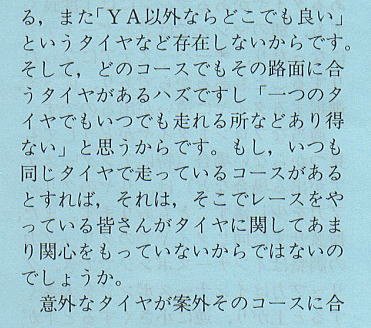 る，また「ＹＡ以外ならどこでも良い」
というタイヤなど存在しないからです。
そして，どのコースでもその路面に合
うタイヤがあるハズですし「一つのタ
イヤでもいつでも走れる所などあり得
ない」と思うからです。もし，いつも
同じタイヤで走っているコースがある
とすれば，それは，そこでレースをや
っている皆さんがタイヤに関してあま
り関心をもっていないからではないの
でしょうか。
　意外なタイヤが案外そのコースに合